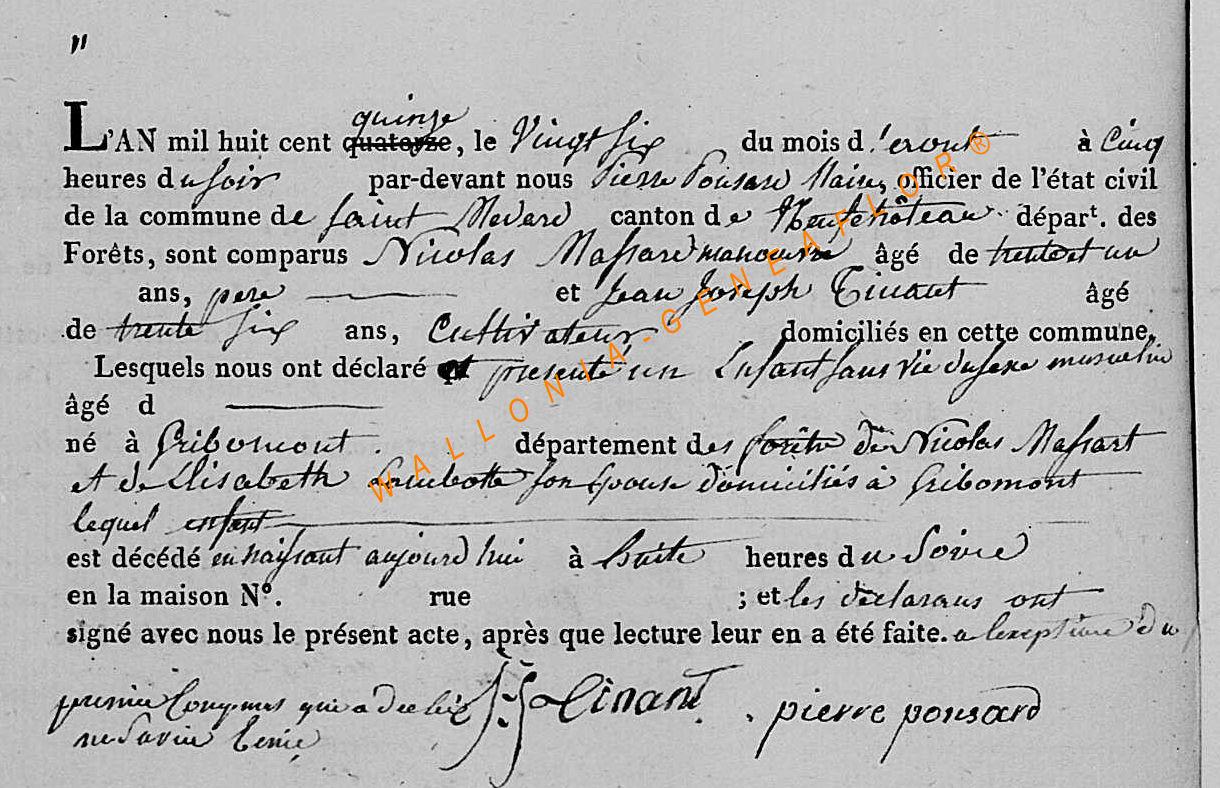 "
quinze
L'AN mil huit cent quatorze, le Vingt six du mois d'Aout à Cinq
heures du soir par-devant nous Pierre Ponsard Maire, officier de l'état civil
de la commune de Saint Medard canton de Neufchâteau départ. des
Forêts, sont comparus Nicolas Massard manouvre âgé de trente et un
ans, pere et Jean Joseph Tinant âgé
de trente six ans, Cultivateur domiciliés en cette commune,
Lesquels nous ont déclaré et presenté un Enfant sans vie du sexe masculin
âgé d
né à Gribomont. département des forêts de Nicolas Massart
et de Elisabeth Lambotte son Epouse domiciliés à Gribomont
lequel enfant
est décédé en naissant aujourd hui à huit heures du Soire
en la maison N°. rue ; et les declarans ont
signé avec nous le présent acte, après que lecture leur en a été faite. a lexeptione du
premier qui a declaré J: J: Tinant. pierre ponsard
ne Savoir
WALLONIA-GENEAFLOR®